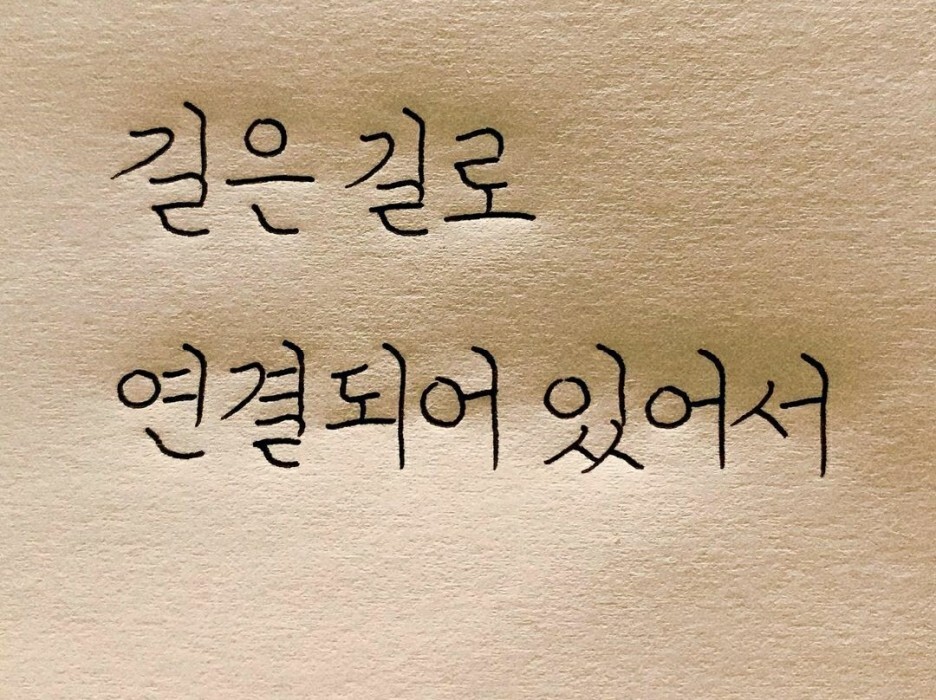 길은 길로
연결되어 있어서